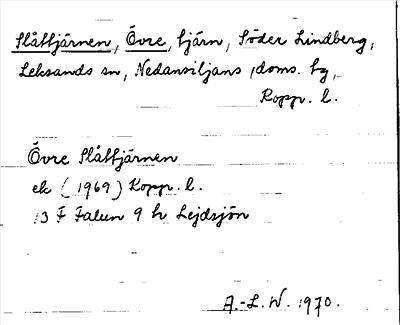 Slåttjärnen, Övre, tjärn, Söder Lindberg,
Leksands sn, Nedansiljans doms. hg,
Kopp. l.
Övre Slåttjärnen
ek (1969) Kopp. l.
13 F Falun 9 h Lejdsjön
A.-L. W. 1970.